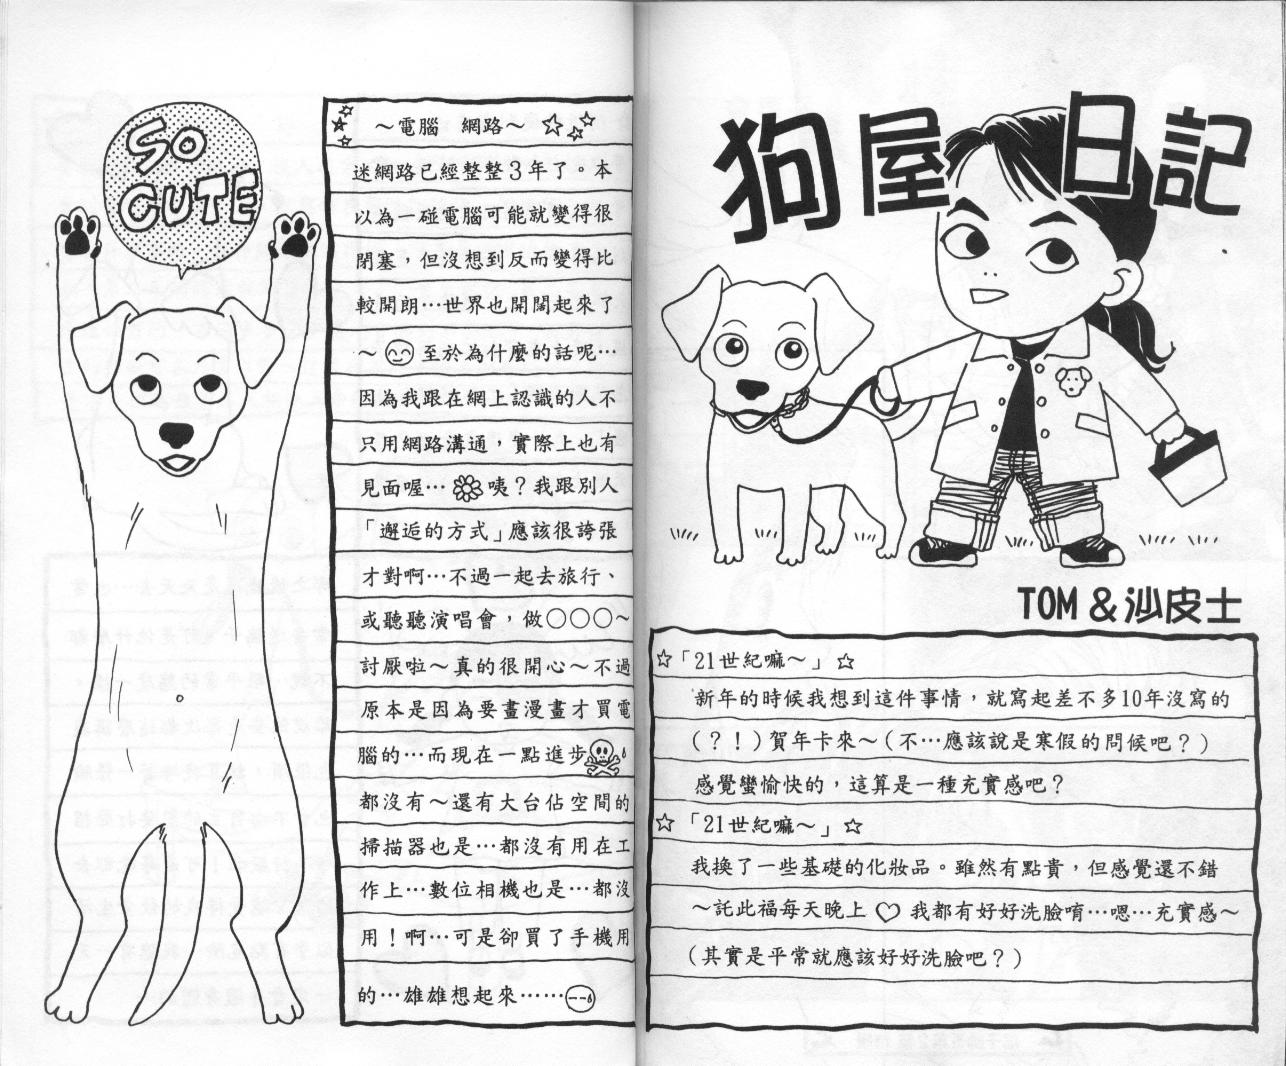 SO
CUTE
~電腦 網路~
迷網路已經整整3年了。本
以為一碰電腦可能就變得很
閉塞，但沒想到反而變得比
較開朗…世界也開闊起來了
~至於為什麼的話呢…
因為我跟在網上認識的人不
只用網路溝通，實際上也有
見面喔…咦？我跟別人
「邂逅的方式」應該很誇張
才對啊…不過一起去旅行、
或聽聽演唱會，做○○○~
討厭啦~真的很開心~不過
原本是因為要畫漫畫才買電
腦的…而現在一點進步
都沒有~還有大台佔空間的
掃描器也是…都沒有用在工
作上…數位相機也是…都沒
用！啊…可是卻買了手機用
的…雄雄想起來……
狗屋日記
TOM & 沙皮士
☆「21世紀嘛~」☆
新年的時候我想到這件事情，就寫起差不多10年沒寫的
(？！)賀年卡來~(不…應該說是寒假的問候吧？)
感覺蠻愉快的，這算是一種充實感吧？
☆「21世紀嘛~」☆
我換了一些基礎的化妝品。雖然有點貴，但感覺還不錯
~託此福每天晚上♡我都有好好洗臉唷…嗯…充實感~
(其實是平常就應該好好洗臉吧？)